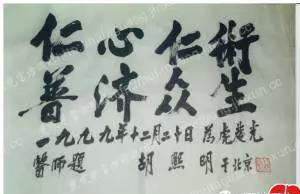 仁心仁術
普济众生
一九九九年十二月二十日為虎楚光
醫師題 胡熙明于北京